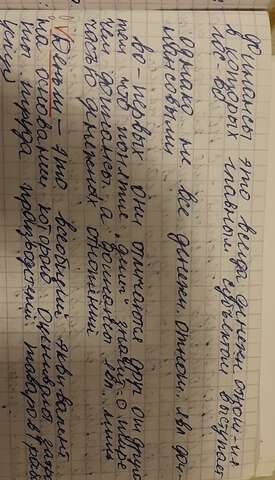 Финансы это всегда денежн отнош-ия
в которых главным субъектом выступает
гос-во
Однако не все денежн. отнош. явл фин-
нансовыми
во-первых они отличаются друг от друга
тем что понятие "деньги" шире
чем финансы, а финансы явл. лишь
частью денежных отношений
Деньги – это всеобщий эквивалент
на основании которого оценивают затра
ты труда производителей товаров раб
услуг